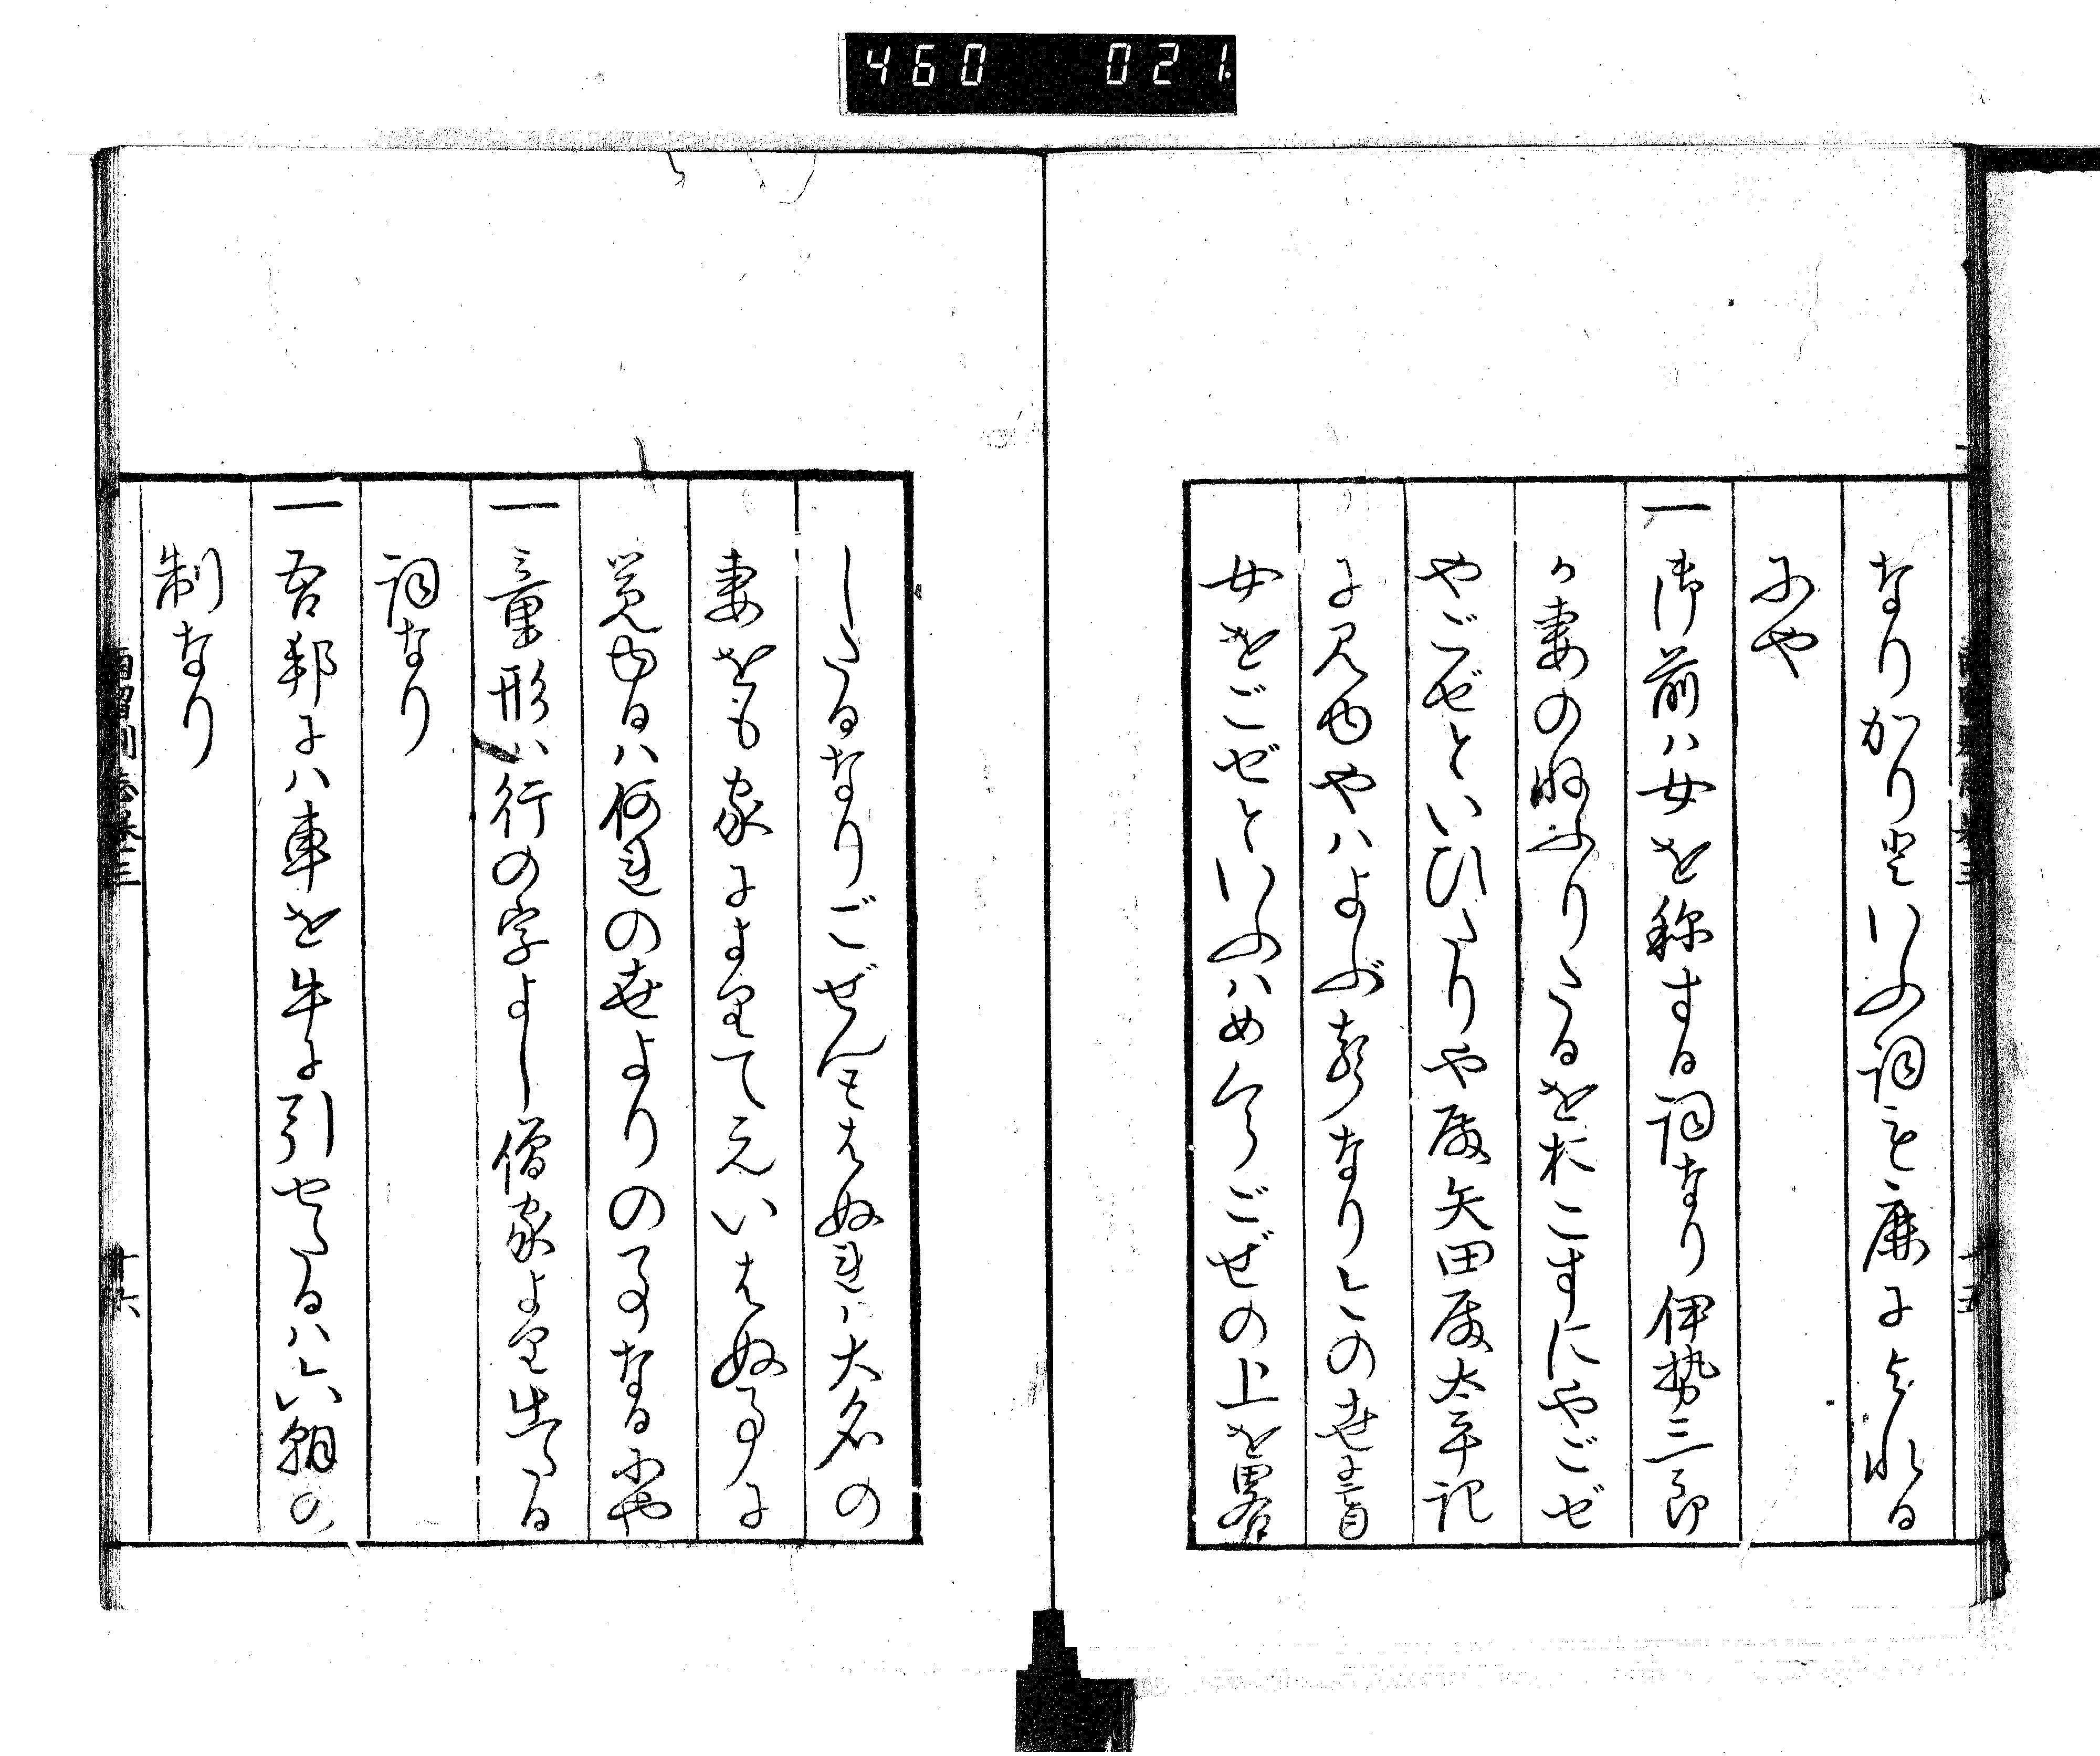 460 021
なりかりといふ詞も廉によれる
にや
一御前ハ女を称する詞なり伊勢三郎
か妻のねふりたるをおこすにやごぜ
やごぜといひたりや殿矢田殿太平記
に見ゆやハよぶ声なりこの世に盲
女をごぜといふハめくらごぜの上を畧
したるなりごぜんもはぬれハ大名の
妻をも家によりてえいはぬ事に
覚ゆるハ何れの世よりの事なるにや
一童形ハ行の字よし僧家より出たる
詞なり
一吾邦にハ車を牛に引せたるハ六朝の
制なり
十五
十六